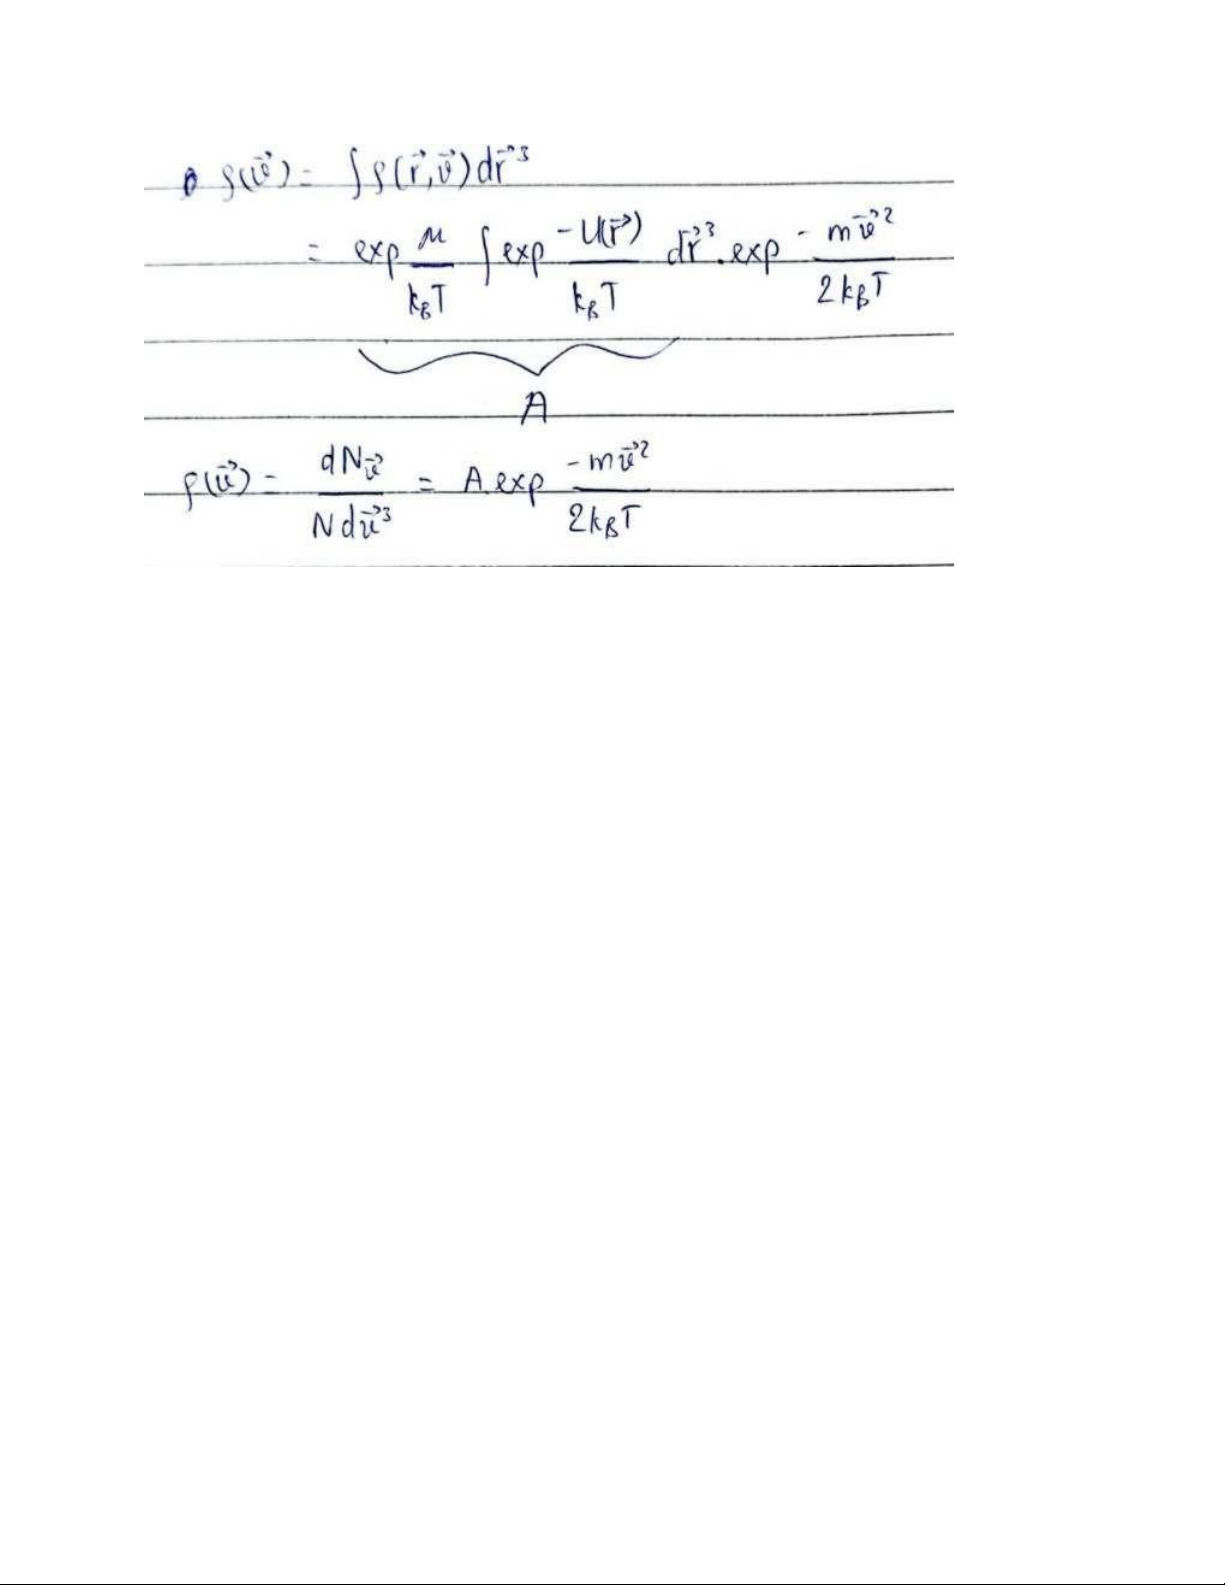 ρ(v⃗) = ∫ρ(r⃗,v⃗)dr⃗³
= exp μ/k_BT ∫exp -U(r⃗)/k_BT dr⃗³.exp - mv⃗²/2k_BT
A
ρ(v⃗) = dN_v⃗/Ndv⃗³ = A.exp -mv⃗²/2k_BT